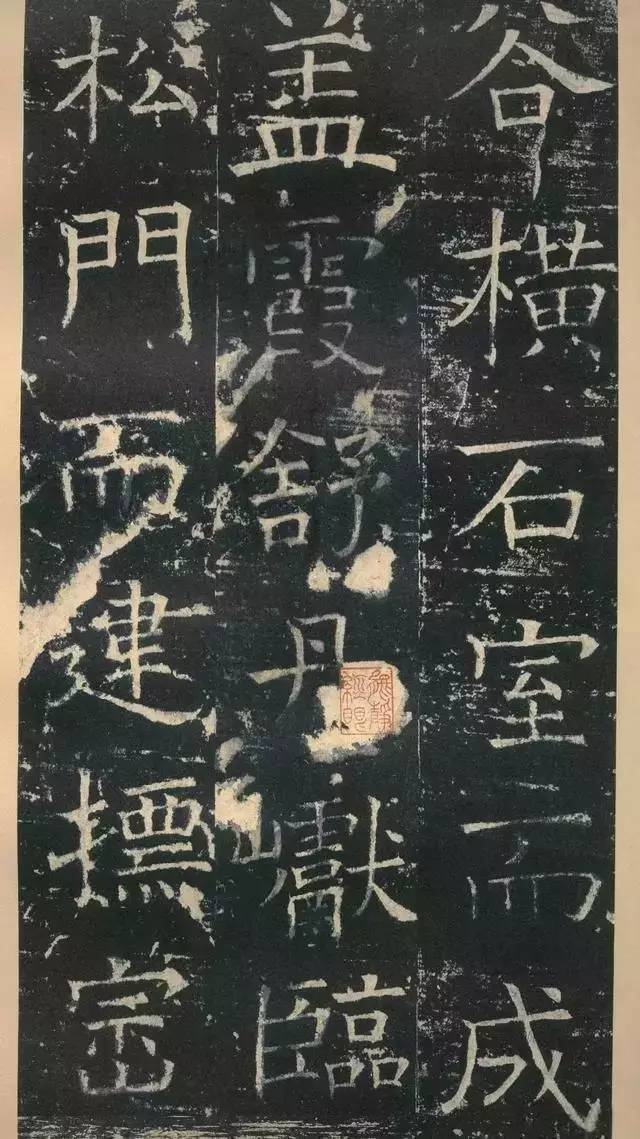 橫石室而成
蓋霞舒丹巘臨
松門而建標崇